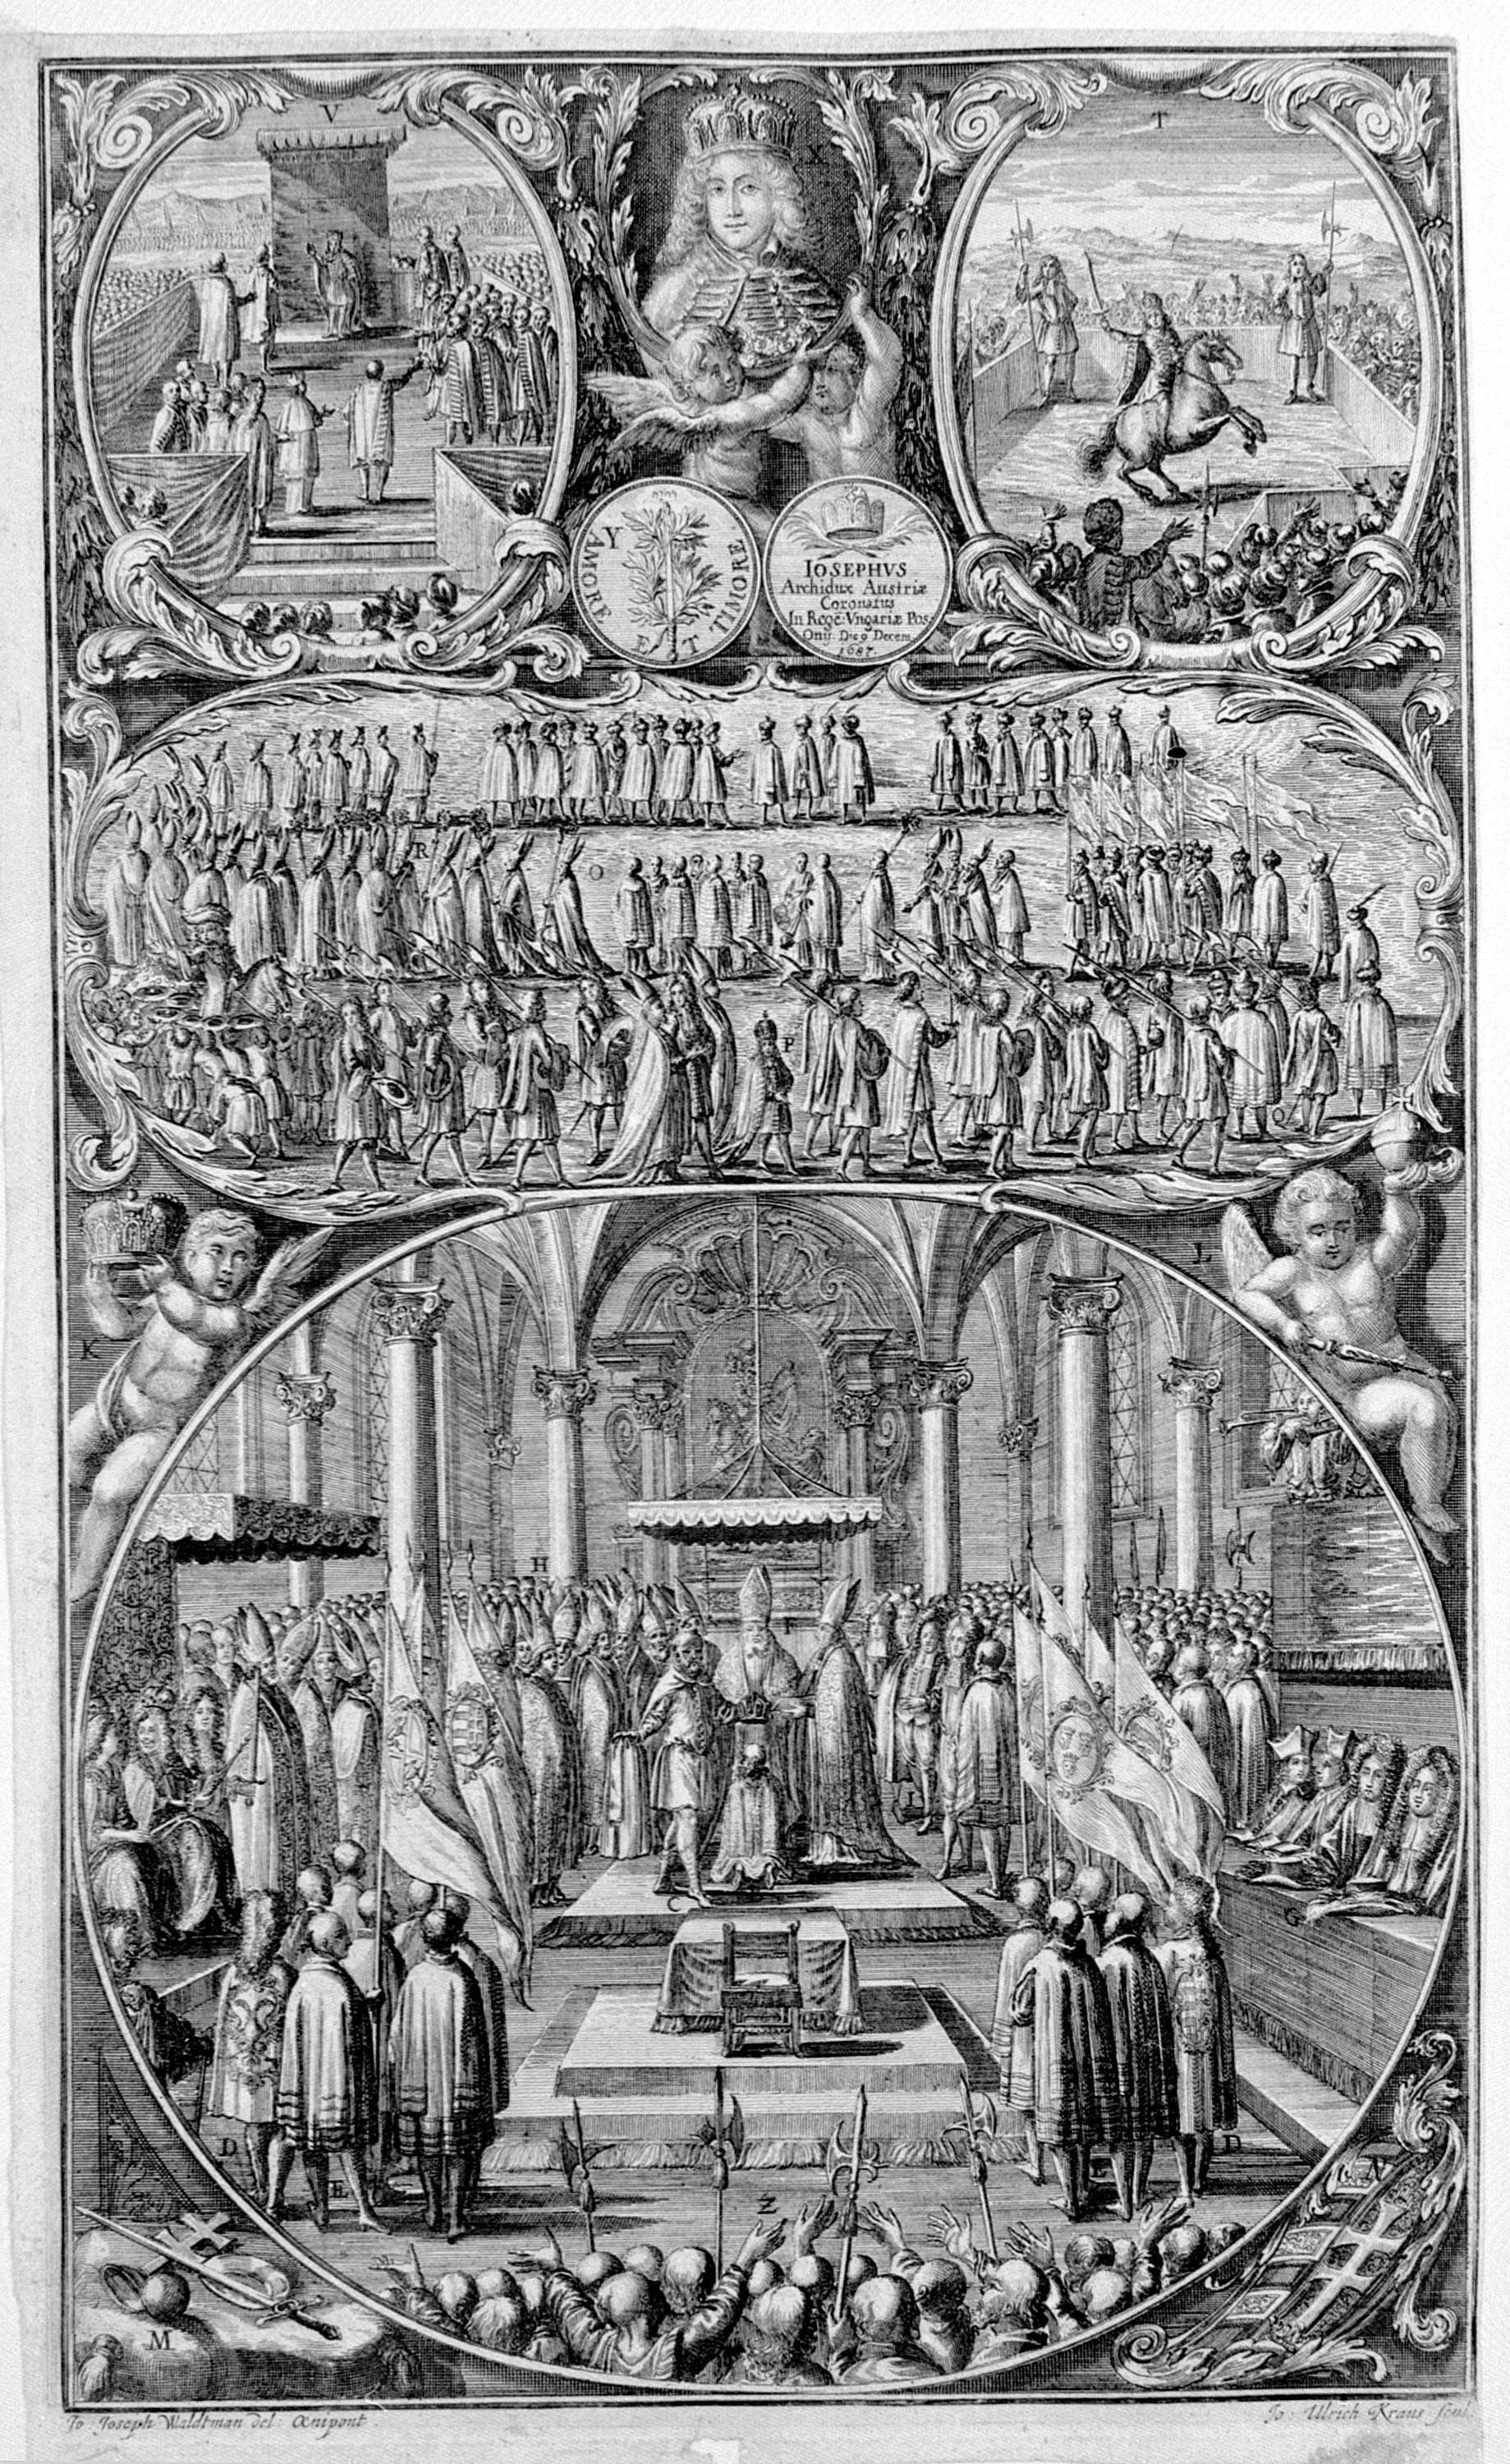 V
X
T
Y
AMORE ET TIMORE
IOSEPHVS
Archidux Austriæ
Coronatus
In Regē Vngariæ Pos-
Onij Die 9 Decem
1687.
R
O
P
Q
K
L
H
F
I
C
G
D
E
E
D
Z
M
Jo: Joseph Waldtman del: Œnipont.
Jo: Ulrich Kraus sculp.